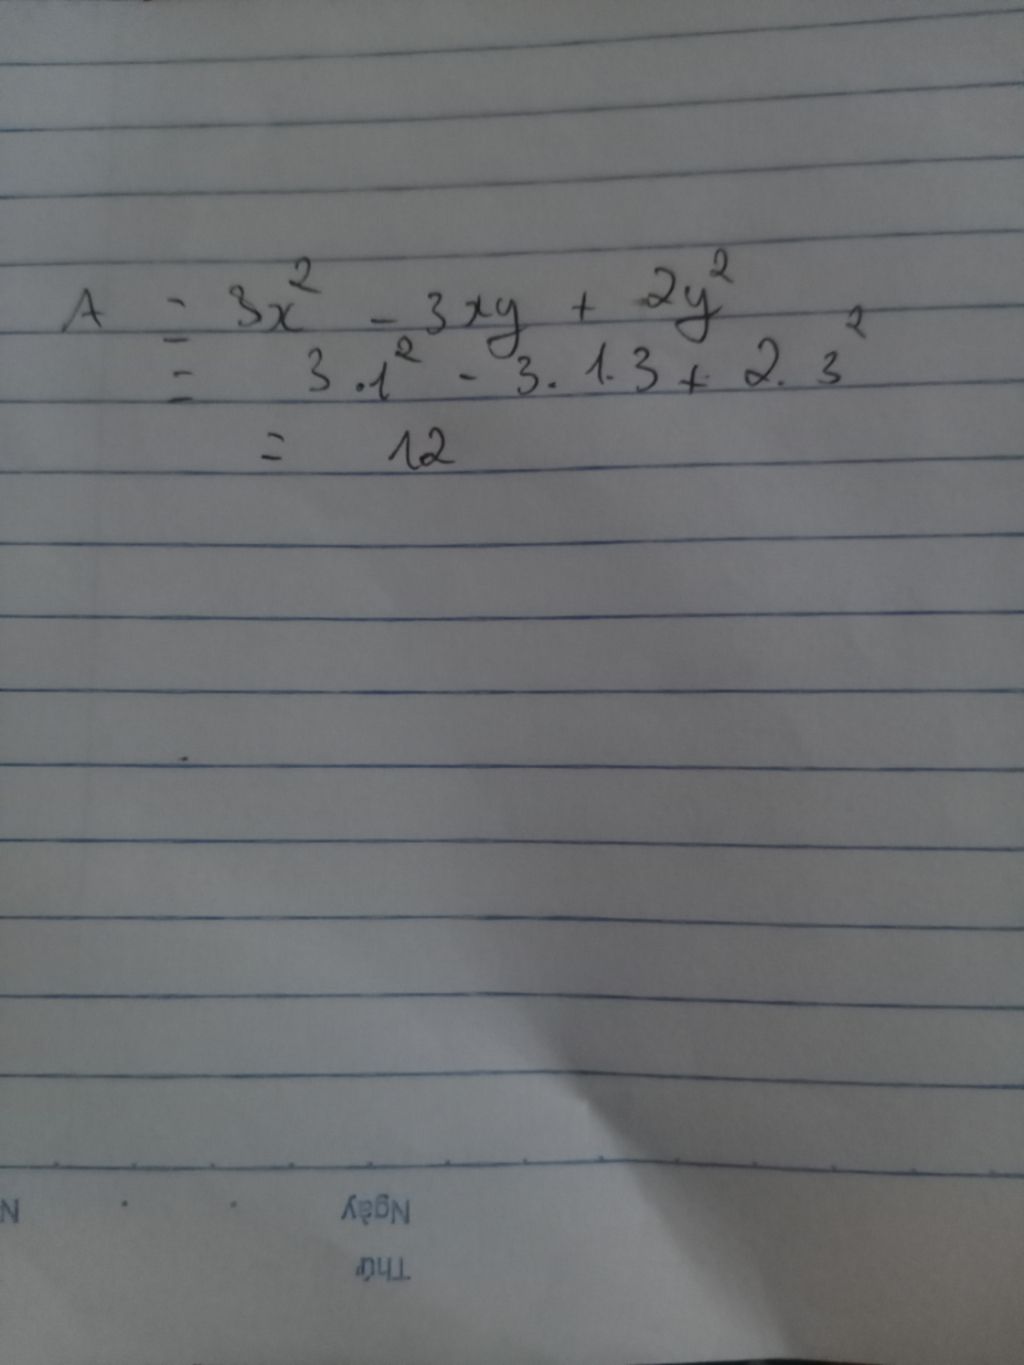 A = 3x² - 3xy + 2y²
= 3.1² - 3.1.3 + 2.3²
= 12
Ngày
Thứ